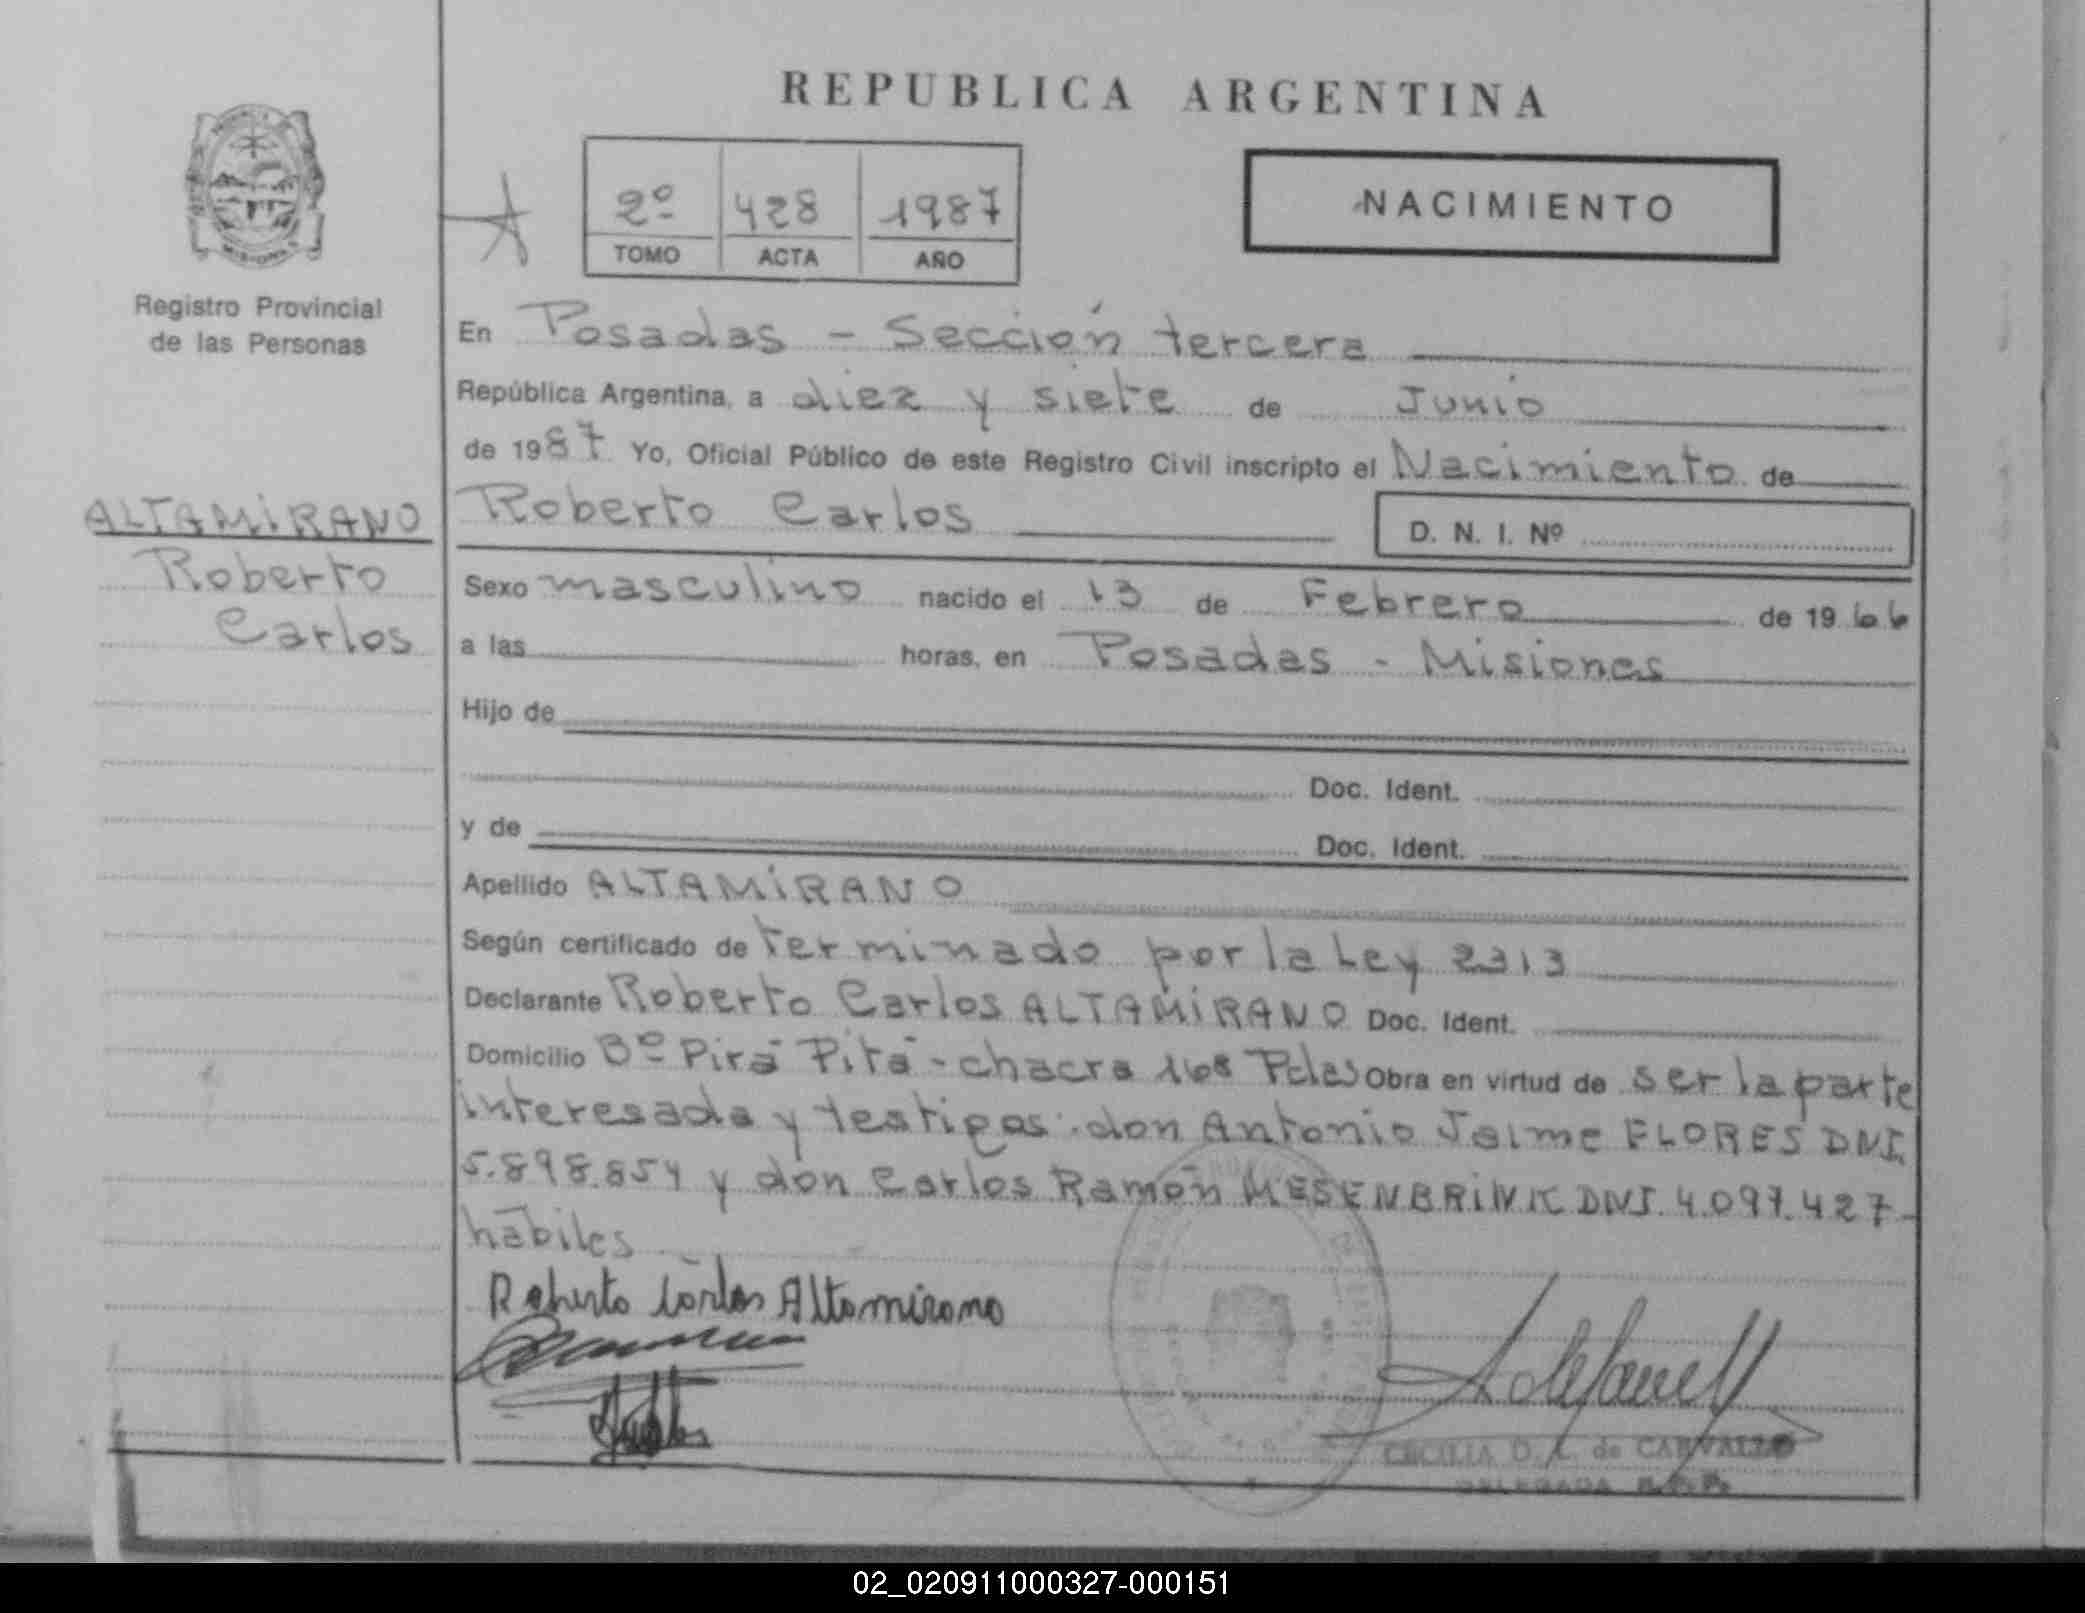 REPUBLICA ARGENTINA
2º 428 1987
TOMO ACTA AÑO
NACIMIENTO
Registro Provincial
de las Personas
ALTAMIRANO
Roberto
Carlos
En Posadas - Sección tercera
República Argentina, a diez y siete de Junio
de 1987 Yo, Oficial Público de este Registro Civil inscripto el Nacimiento de
Roberto Carlos D. N. I. Nº
Sexo masculino nacido el 13 de Febrero de 1966
a las horas, en Posadas - Misiones
Hijo de
Doc. Ident.
y de Doc. Ident.
Apellido ALTAMIRANO
Según certificado de terminado por la Ley 2313
Declarante Roberto Carlos ALTAMIRANO Doc. Ident.
Domicilio Bº Pirá Pitá - chacra 168 Pdas Obra en virtud de ser la parte
interesada y testigos: don Antonio Jaime FLORES DNI.
5.898.854 y don Carlos Ramón MESENBRINK DNI. 4.097.427-
hábiles
Roberto Carlos Altamirano
CECILIA D. L. de CARVALLO
DELEGADA
02_020911000327-000151